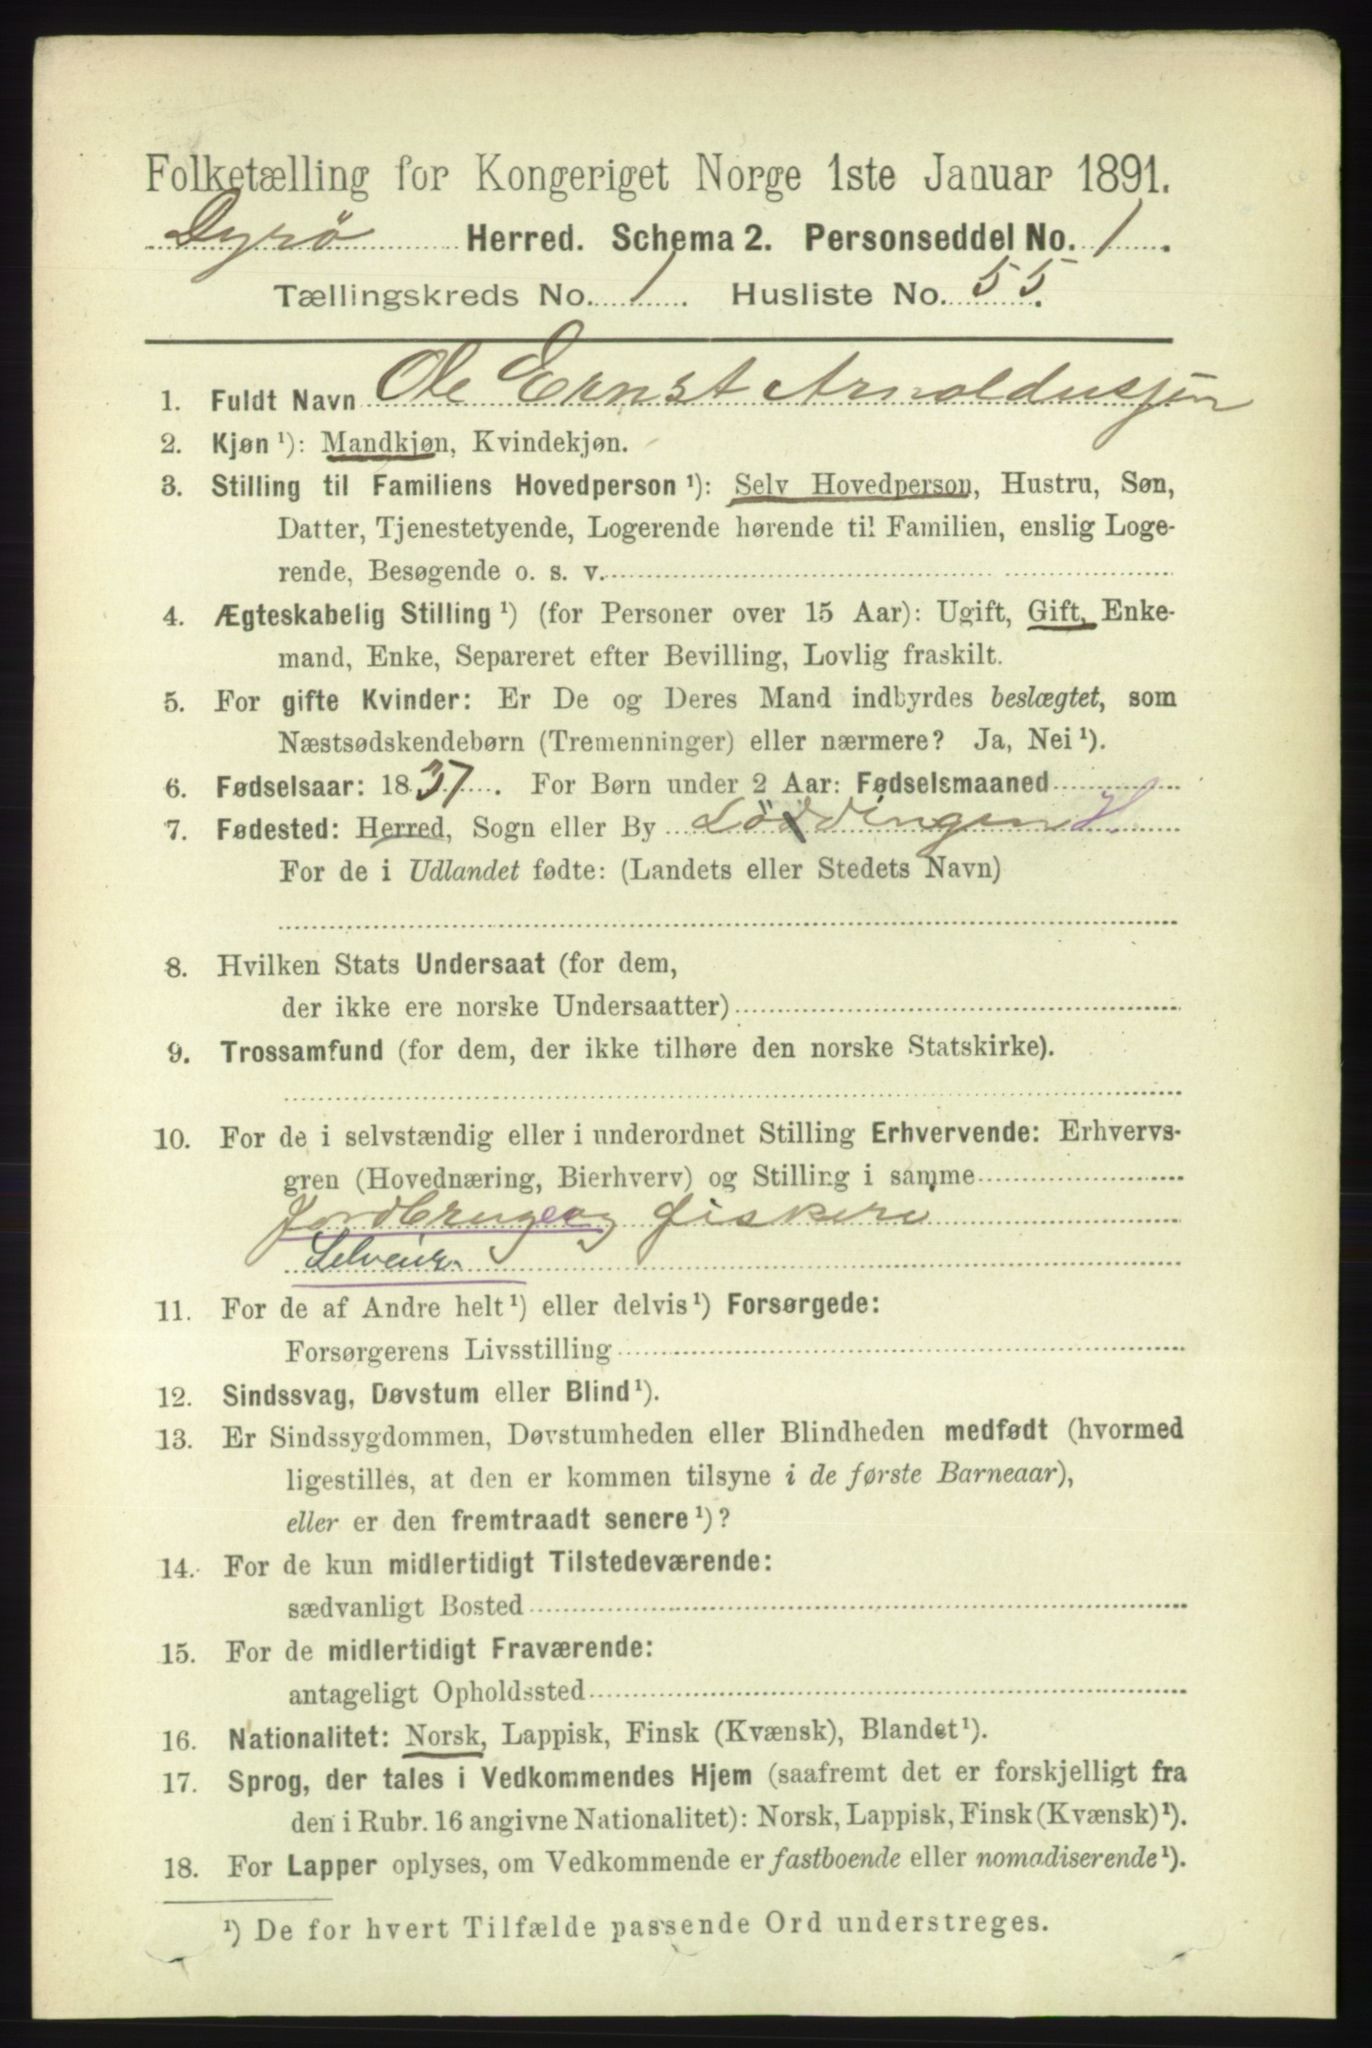 Folketælling for Kongeriget Norge 1ste Januar 1891.
Dyrö Herred. Schema 2. Personseddel No. 1.
Tællingskreds No. 1. Husliste No. 55.
1. Fuldt Navn Ole Ernst Arnoldussen
2. Kjøn¹): Mandkjøn, Kvindekjøn.
3. Stilling til Familiens Hovedperson¹): Selv Hovedperson, Hustru, Søn,
Datter, Tjenestetyende, Logerende hørende til Familien, enslig Loge-
rende, Besøgende o. s. v.
4. Ægteskabelig Stilling¹) (for Personer over 15 Aar): Ugift, Gift, Enke-
mand, Enke, Separeret efter Bevilling, Lovlig fraskilt.
5. For gifte Kvinder: Er De og Deres Mand indbyrdes beslægtet, som
Næstsødskendebørn (Tremenninger) eller nærmere? Ja, Nei¹).
6. Fødselsaar: 1837. For Børn under 2 Aar: Fødselsmaaned
7. Fødested: Herred, Sogn eller By Löddingen H
For de i Udlandet fødte: (Landets eller Stedets Navn)
8. Hvilken Stats Undersaat (for dem,
der ikke ere norske Undersaatter)
9. Trossamfund (for dem, der ikke tilhøre den norske Statskirke).
10. For de i selvstændig eller i underordnet Stilling Erhvervende: Erhvervs-
gren (Hovednæring, Bierhverv) og Stilling i samme
Jordbruge og Fiskeri
Selveier
11. For de af Andre helt¹) eller delvis¹) Forsørgede:
Forsørgerens Livsstilling
12. Sindssvag, Døvstum eller Blind¹).
13. Er Sindssygdommen, Døvstumheden eller Blindheden medfødt (hvormed
ligestilles, at den er kommen tilsyne i de første Barneaar),
eller er den fremtraadt senere¹)?
14. For de kun midlertidigt Tilstedeværende:
sædvanligt Bosted
15. For de midlertidigt Fraværende:
antageligt Opholdssted
16. Nationalitet: Norsk, Lappisk, Finsk (Kvænsk), Blandet¹).
17. Sprog, der tales i Vedkommendes Hjem (saafremt det er forskjelligt fra
den i Rubr. 16 angivne Nationalitet): Norsk, Lappisk, Finsk (Kvænsk)¹).
18. For Lapper oplyses, om Vedkommende er fastboende eller nomadiserende¹).
¹) De for hvert Tilfælde passende Ord understreges.